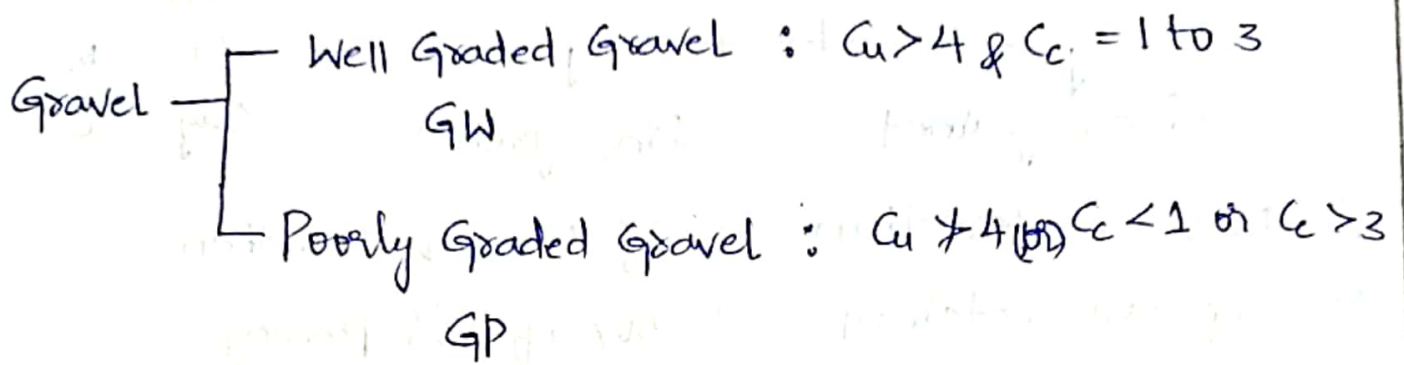 Well Graded Gravel : Cu>4 & Cc = 1 to 3
Gravel
GW
Poorly Graded Gravel : Cu ≯ 4 (or) Cc <1 or Cc >3
GP